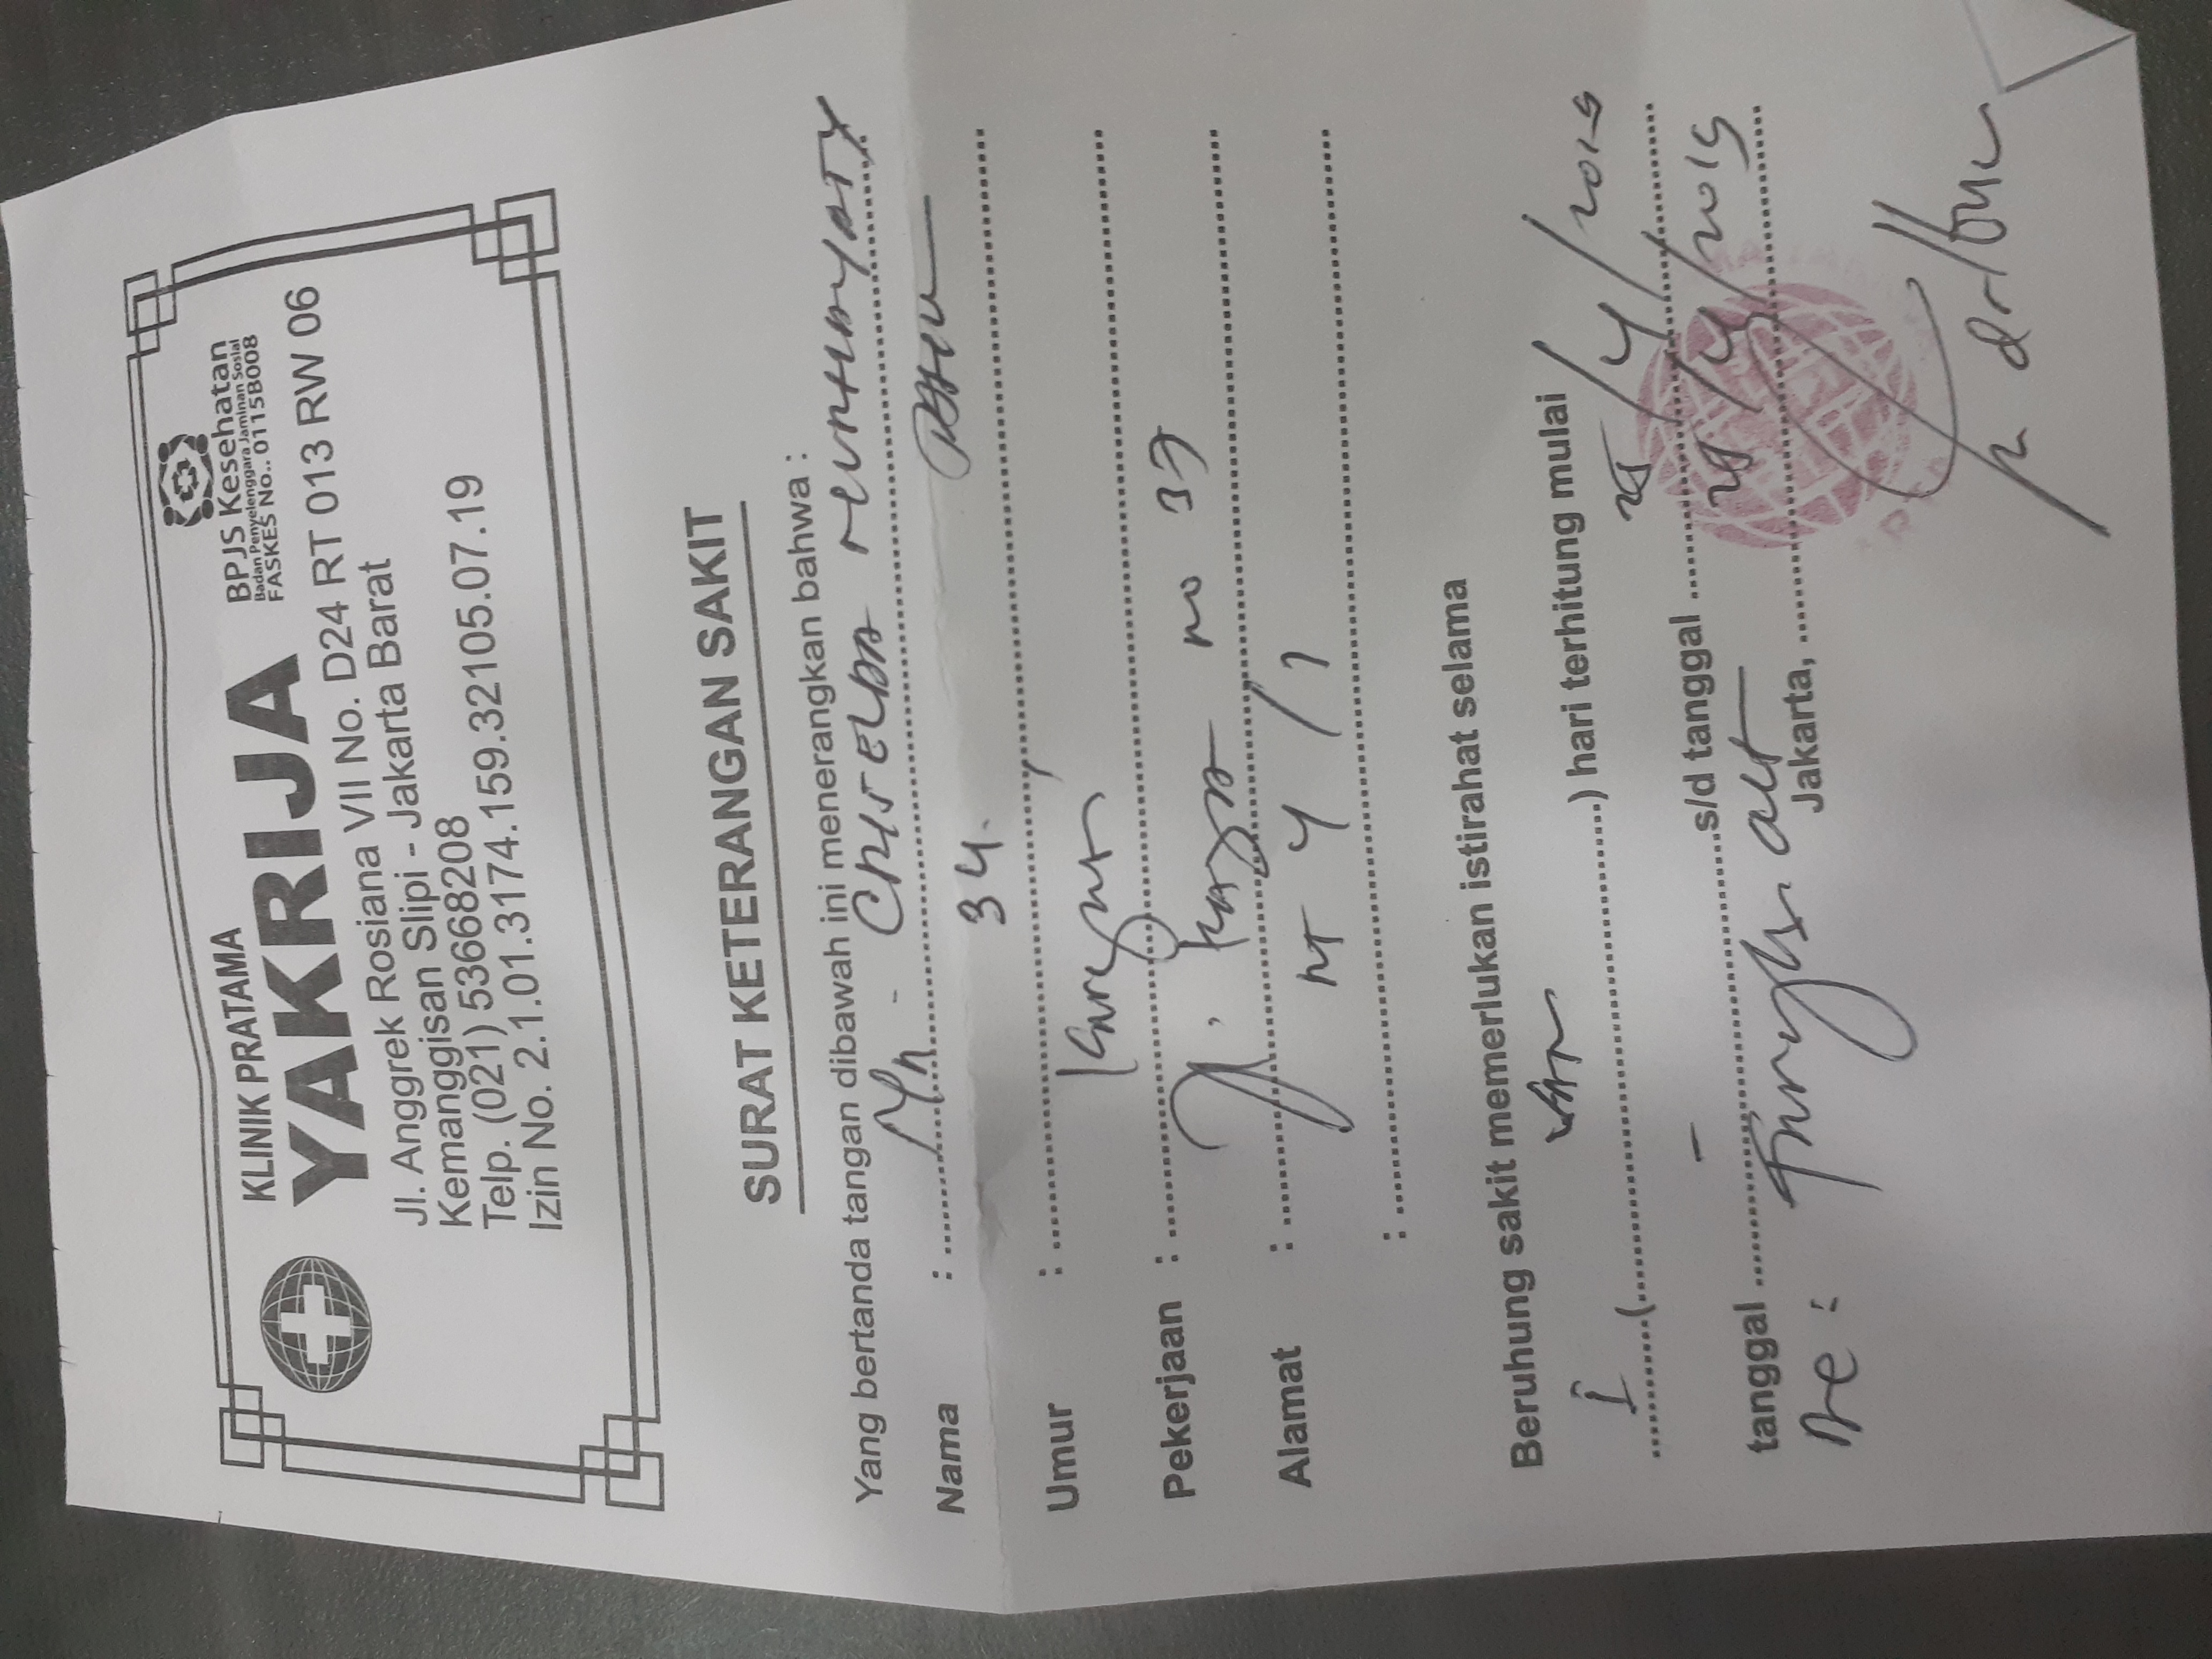 KLINIK PRATAMA
YAKRIJA
BPJS Kesehatan
Badan Penyelenggara Jaminan Sosial
FASKES No.. 0115B008
Jl. Anggrek Rosiana VII No. D24 RT 013 RW 06
Kemanggisan Slipi - Jakarta Barat
Telp. (021) 53668208
Izin No. 2.1.01.3174.159.32105.07.19
SURAT KETERANGAN SAKIT
Yang bertanda tangan dibawah ini menerangkan bahwa :
Nama : CRISELDA NURHAYATY
Umur : 34.
Pekerjaan :
Alamat : Jl. no 37
: RT 4 / 1
Beruhung sakit memerlukan istirahat selama
I (satu) hari terhitung mulai
tanggal - s/d tanggal /4/2019
Jakarta, /4/2019